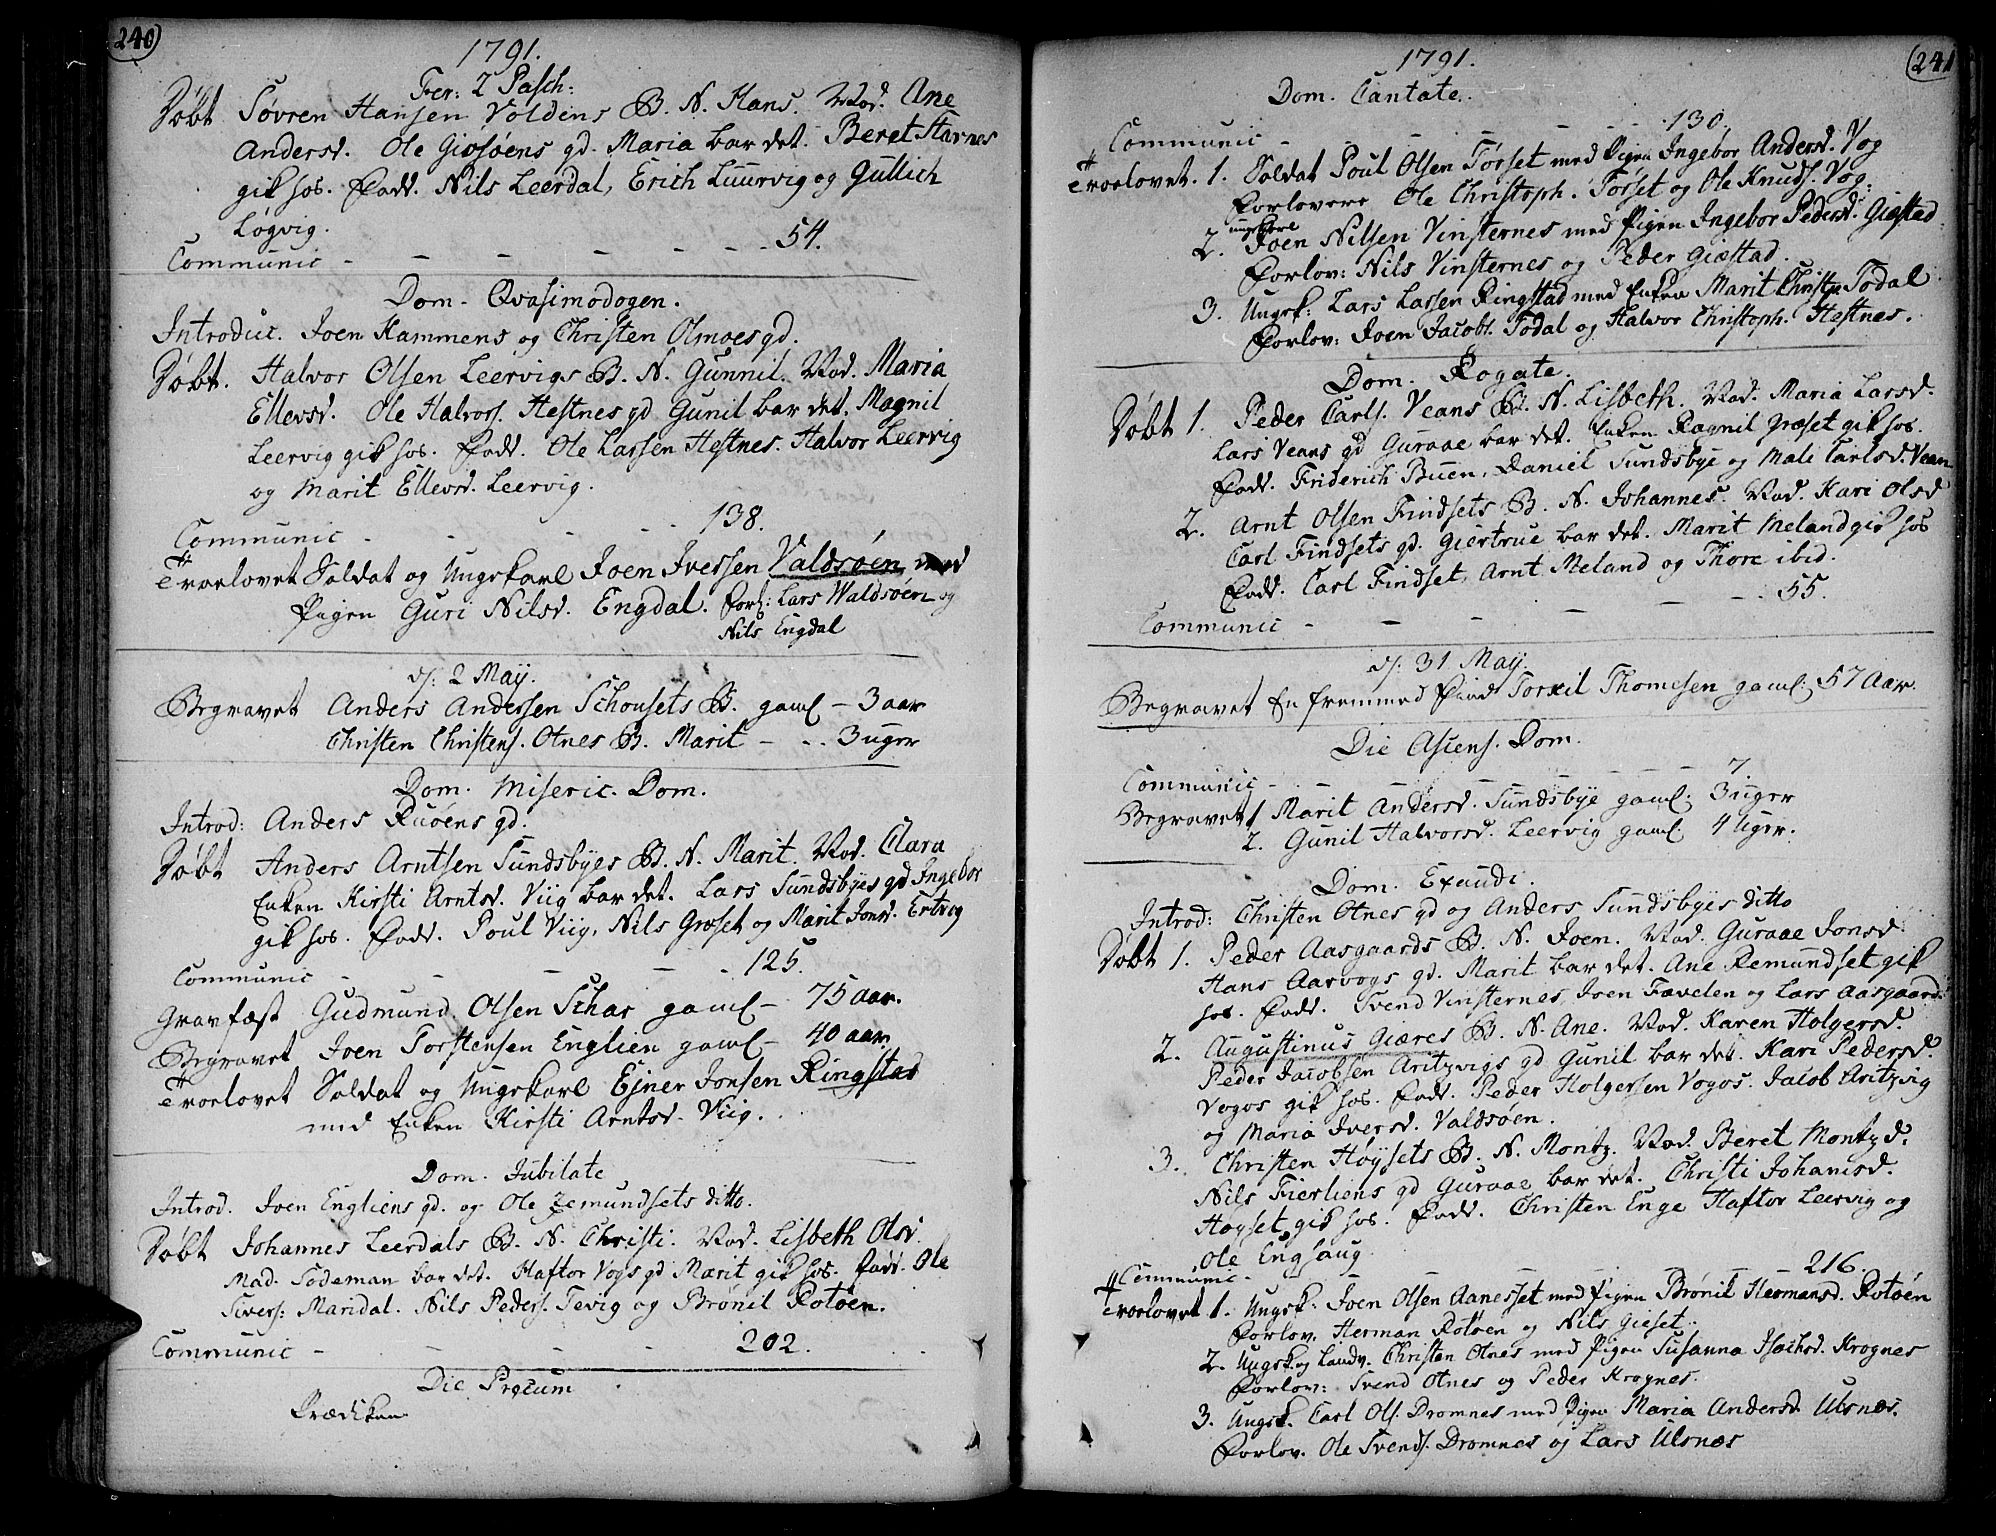 240
1791.
Fer: 2 Pasch:
Døbt Søvren Hansen Voldens B. N. Hans. Mod. Ane
Andersd. Ole Giøsøens gd. Maria bar det. Beret Stavnes
gik hos. Fadd. Nils Leerdal, Erich Luurvig og Gullich
Løgvig.
Communic - - - - - - 54.
Dom. Qvasimodogen.
Introduc. Joen Hammens og Christen Olmoes gd.
Døbt. Halvor Olsen Leervigs B. N. Gunnil. Mod. Maria
Ellevsd. Ole Halvors. Hestnes gd Gunil bar det. Magnil
Leervig gik hos. Fadd. Ole Larsen Hestnes. Halvor Leervig
og Marit Ellevsd. Leervig.
Communic - - - - 138.
Trovlovet Soldat og Ungekarl Joen Iversen Valdsøen, med
Pigen Guri Nilsd. Engdal. Forl: Lars Waldsøen og
Nils Engdal
d. 2 May.
Begravet Anders Andersen Schousets B. gaml - 3 aar
Christen Christens. Otnes B. Marit - - 3 uger
Dom. Miseric. Dom.
Introd: Anders Ruøens gd.
Døbt Anders Arntsen Sundsbyes B. N. Marit. Mod. Clara
Enken Kirsti Arntsd. Viig bar det. Lars Sundsbyes gd Ingebor
gik hos. Fadd. Poul Viig, Nils Græset og Marit Jonsd. Ertvog
Communic - - - - - 125.
Gravfæst Gudmund Olsen Schar gaml - 75 aar.
Begravet Joen Torstensen Englien gaml - 40 aar.
Trovlovet Soldat og Ungekarl Ejner Jonsen Ringstad
med Enken Kirsti Arntsd. Viig.
Dom. Jubilate
Introd. Joen Engliens gd. og Ole Zemundsets ditto.
Døbt Johannes Leerdals B. N. Christi. Mod. Lisbeth Olsd.
Mad. Sodeman bar det. Haftor Vogs gd Marit gik hos. Fadd. Ole
Sivers: Maridal. Nils Peders. Tevig og Brønil Rotøen.
Communic - - - - - 202.
Die Precum
Prædiken
1791.
241
Dom. Cantate.
Communic - - - - - 130.
Trovlovet. 1. Soldat Poul Olsen Torset med Pigen Ingebor Andersd. Vog
Forlovere Ole Christoph. Torset og Ole Knuds. Vog.
ungkarl
2. Joen Nilsen Vinsternes med Pigen Ingebor Pedersd. Giæstad
Forlov: Nils Vinsternes og Peder Giæstad.
3. Ungk: Lars Larsen Ringstad med Enken Marit Christp Todal
Forlov: Joen Jacobs. Todal og Halvor Christoph. Hestnes.
Dom. Rogate.
Døbt 1. Peder Carls. Veans B. N. Lisbeth. Mod. Maria Larsd.
Lars Veans gd Guraae bar det. Enken Ragnil Græset gik hos.
Fadd. Friderich Buen, Daniel Sundsbye og Mali Carlsd. Vean
2. Arnt Olsen Findsets B. N. Johannes. Mod. Kari Olsd
Carl Findsets gd. Giertrue bar det. Marit Meland gik hos
Fadd. Carl Findset, Arnt Meland og Thore ibid.
Communic - - - - - 55.
d. 31 May.
Begravet En fremmed Find Torkil Thomesen gaml: 57 Aar.
Die Ascens. Dom.
Communic - - - - - 7.
Begravet 1 Marit Andersd. Sundsbye gaml: 3 uger
2. Gunil Halvorsd. Leervig gaml 4 Uger.
Dom. Exaudi.
Introd: Christen Otnes gd og Anders Sundsbyes ditto
Døbt 1. Peder Aasgaards B. N. Joen. Mod. Guraae Jonsd.
Hans Aarvogs gd. Marit bar det. Ane Remundset gik
hos. Fadd. Svend Vinsternes, Joen Fævelen og Lars Aasgaard.
2. Augustinus Giæres B. N. Ane. Mod. Karen Holgersd.
Peder Jacobsen Aritzvigs gd Gunil bar det. Kari Pedersd.
Vogos gik hos. Fadd. Peder Holgersen Vogos. Jacob Aritzvig
og Maria Iversd. Valdsøen.
3. Christen Høysets B. N. Montz. Mod. Beret Montzd.
Nils Fierliens gd Guraae bar det. Christi Johansd.
Høyset gik hos. Fadd. Christen Enge Haftor Leervig og
Ole Enghaug.
Communic - - - - - 216.
Trovlovet 1. Ungk. Joen Olsen Aanesset med Pigen Brønil Hermansd. Rotøen
Forlov. Herman Rotøen og Nils Gieset.
2. Ungk. og Landv. Christen Otnes med Pigen Susanna Isachsd. Krognes
Forlov: Svend Otnes og Peder Krognes.
3. Ungk. Carl Ols. Dromnes med Pigen Maria Andersd. Ulsnæs.
Forlov. Ole Svends. Dromnes og Lars Ulsnæs